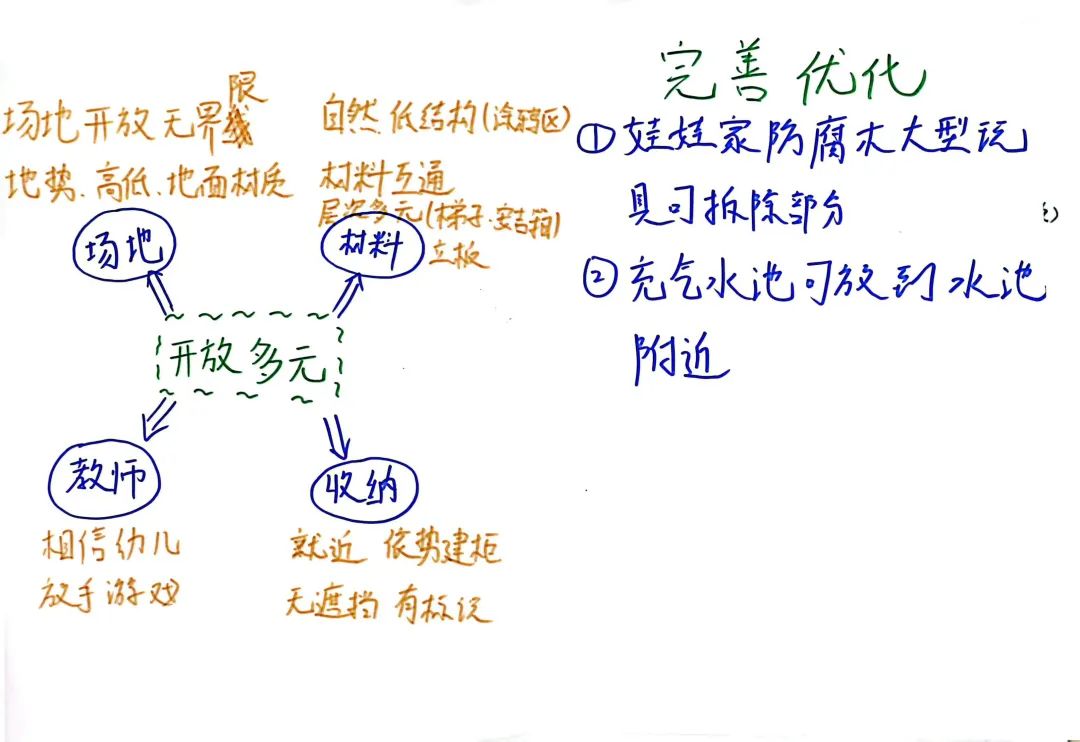 场地开放无界限
地势、高低、地面材质
场地
自然 低结构(涂鸦区)
材料互通
层次多元(梯子·安吉箱)
立板
材料
开放多元
教师
相信幼儿
放手游戏
收纳
就近 依势建柜
无遮挡 有标识
完善优化
①娃娃家防腐木大型玩
具可拆除部分
②充气水池可放到水池
附近